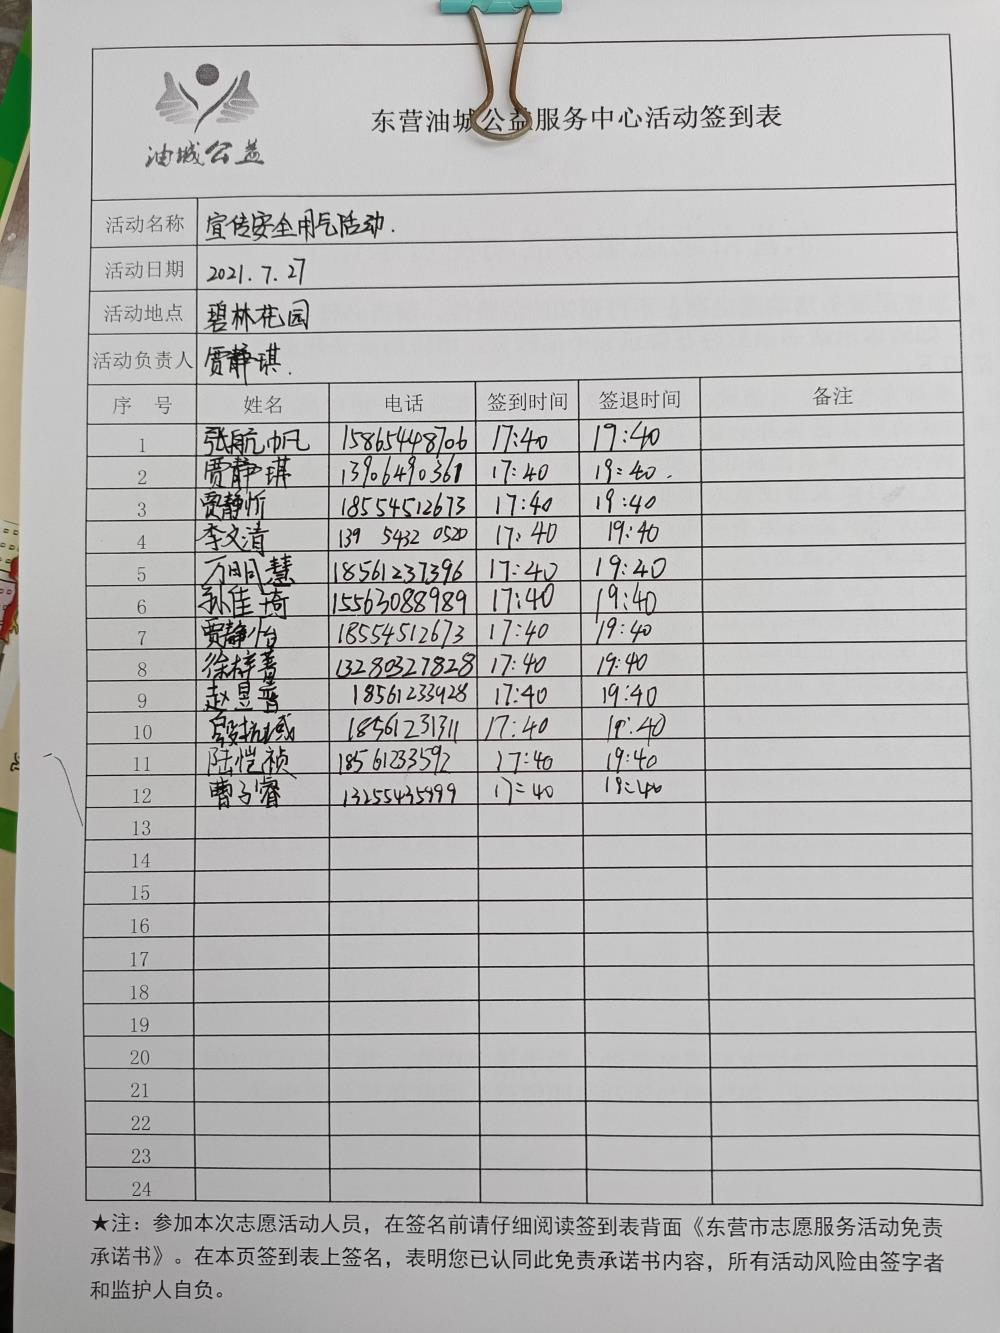 油城公益
东营油城公益服务中心活动签到表
活动名称 宣传安全用气活动.
活动日期 2021.7.27
活动地点 碧林花园
活动负责人 贾静琪.
序 号 姓名 电话 签到时间 签退时间 备注
1 张航帆 15865448706 17:40 19:40
2 贾静琪 13906490361 17:40 19:40.
3 贾静忻 18554512673 17:40 19:40
4 李文清 139 5432 0520 17:40 19:40
5 万明慧 18561237396 17:40 19:40
6 孙佳琦 15563088989 17:40 19:40
7 贾静怡 18554512673 17:40 19:40
8 徐梓菁 13280327828 17:40 19:40
9 赵昱晋 18561233928 17:40 19:40
10 18561231311 17:40 19:40
11 陆恺祯 18561233592 17:40 19:40
12 曹子睿 13255435999 17:40 19:40
13
14
15
16
17
18
19
20
21
22
23
24
★注：参加本次志愿活动人员，在签名前请仔细阅读签到表背面《东营市志愿服务活动免责
承诺书》。在本页签到表上签名，表明您已认同此免责承诺书内容，所有活动风险由签字者
和监护人自负。